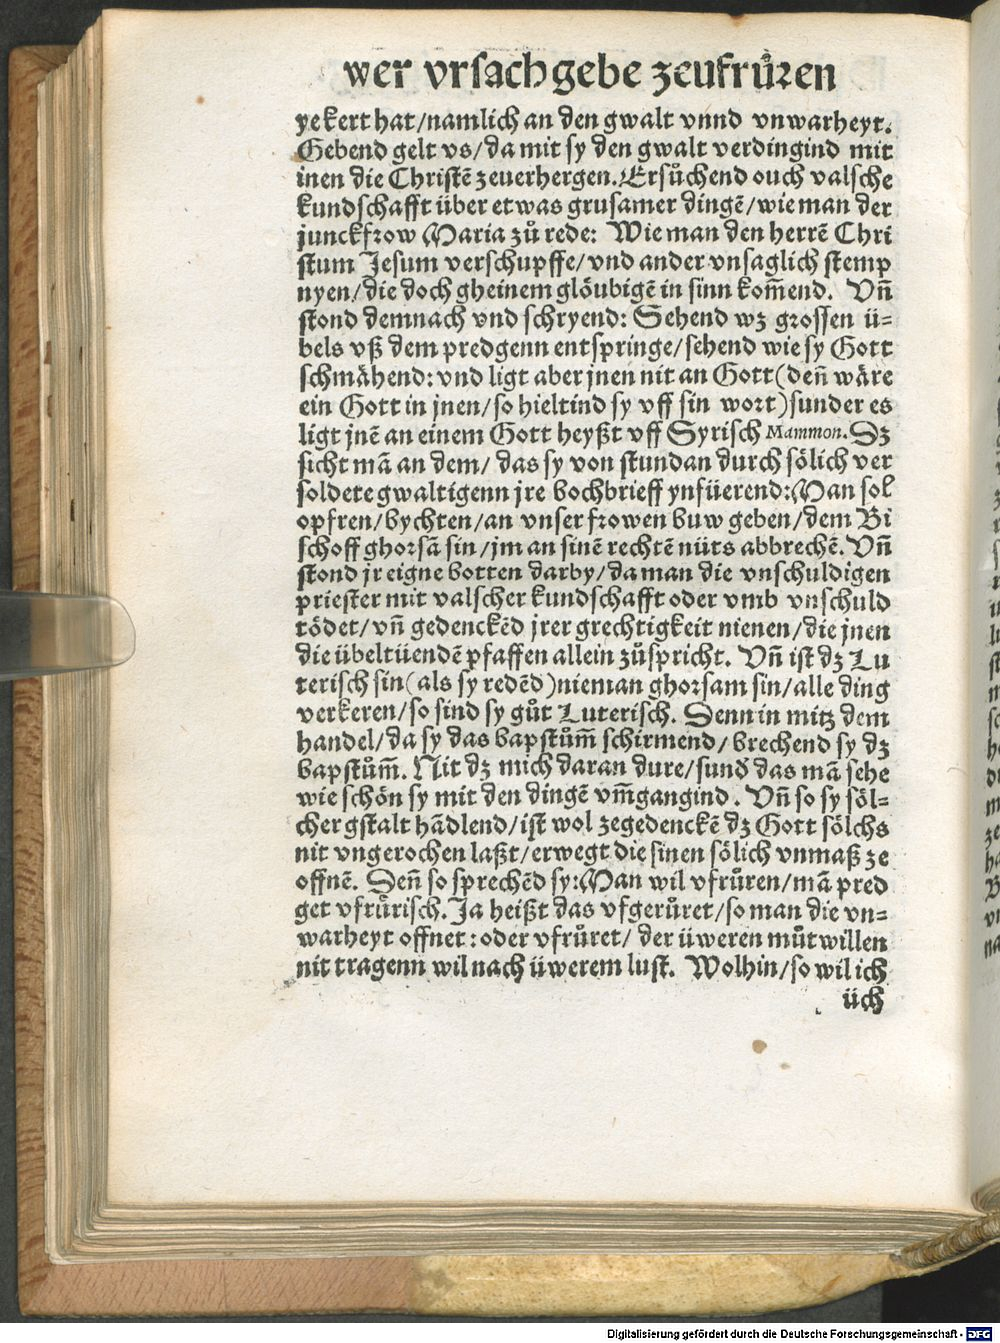 wer vrsach gebe zeufrůren
yekert hat/namlich an den gwalt vnnd vnwarheyt.
Gebend gelt vs/da mit sy den gwalt verdingind mit
inen die Christē zeuerhergen. Ersůchend ouch valsche
kundschafft über etwas grusamer dingē/wie man der
junckfrow Maria zů rede: Wie man den herrē Chri
stum Jesum verschupffe/vnd ander vnsaglich stemp
nyen/die doch gheinem glöubigē in sinn kom̄end. Vn̄
stond demnach vnd schryend: Sehend wz grossen ü-
bels vß dem predgenn entspringe/sehend wie sy Gott
schmähend: vnd ligt aber jnen nit an Gott(den̄ wäre
ein Gott in jnen/so hieltind sy vff sin wort)sunder es
ligt jnē an einem Gott heyßt vff Syrisch Mammon. Dz
sicht mā an dem/das sy von stundan durch sölich ver
soldete gwaltigenn jre bochbrieff ynfüerend: Man sol
opfren/bychten/an vnser frowen buw geben/dem Bi
schoff ghorsā sin/jm an sinē rechtē nüts abbrechē. Vn̄
stond jr eigne botten darby/da man die vnschuldigen
priester mit valscher kundschafft oder vmb vnschuld
tödet/vn̄ gedenckēd jrer grechtigkeit nienen/die jnen
die übeltüendē pfaffen allein zůspricht. Vn̄ ist dz Lu
terisch sin(als sy redēd)nieman ghorsam sin/alle ding
verkeren/so sind sy gůt Luterisch. Denn in mitz dem
handel/da sy das bapstům̄ schirmend/brechend sy dz
bapstům̄. Nit dz mich daran dure/sund̄ das mā sehe
wie schön sy mit den dingē vm̄gangind. Vn̄ so sy söl-
cher gstalt hādlend/ist wol zegedenckē dz Gott sölchs
nit vngerochen laßt/erwegt die sinen sölich vnmaß ze
offnē. Den̄ so sprechēd sy: Man wil vfrůren/mā pred
get vfrůrisch. Ja heißt das vfgerůret/so man die vn-
warheyt offnet: oder vfrůret/der üweren můtwillen
nit tragenn wil nach üwerem lust. Wolhin/so wil ich
üch
Digitalisierung gefördert durch die Deutsche Forschungsgemeinschaft - DFG